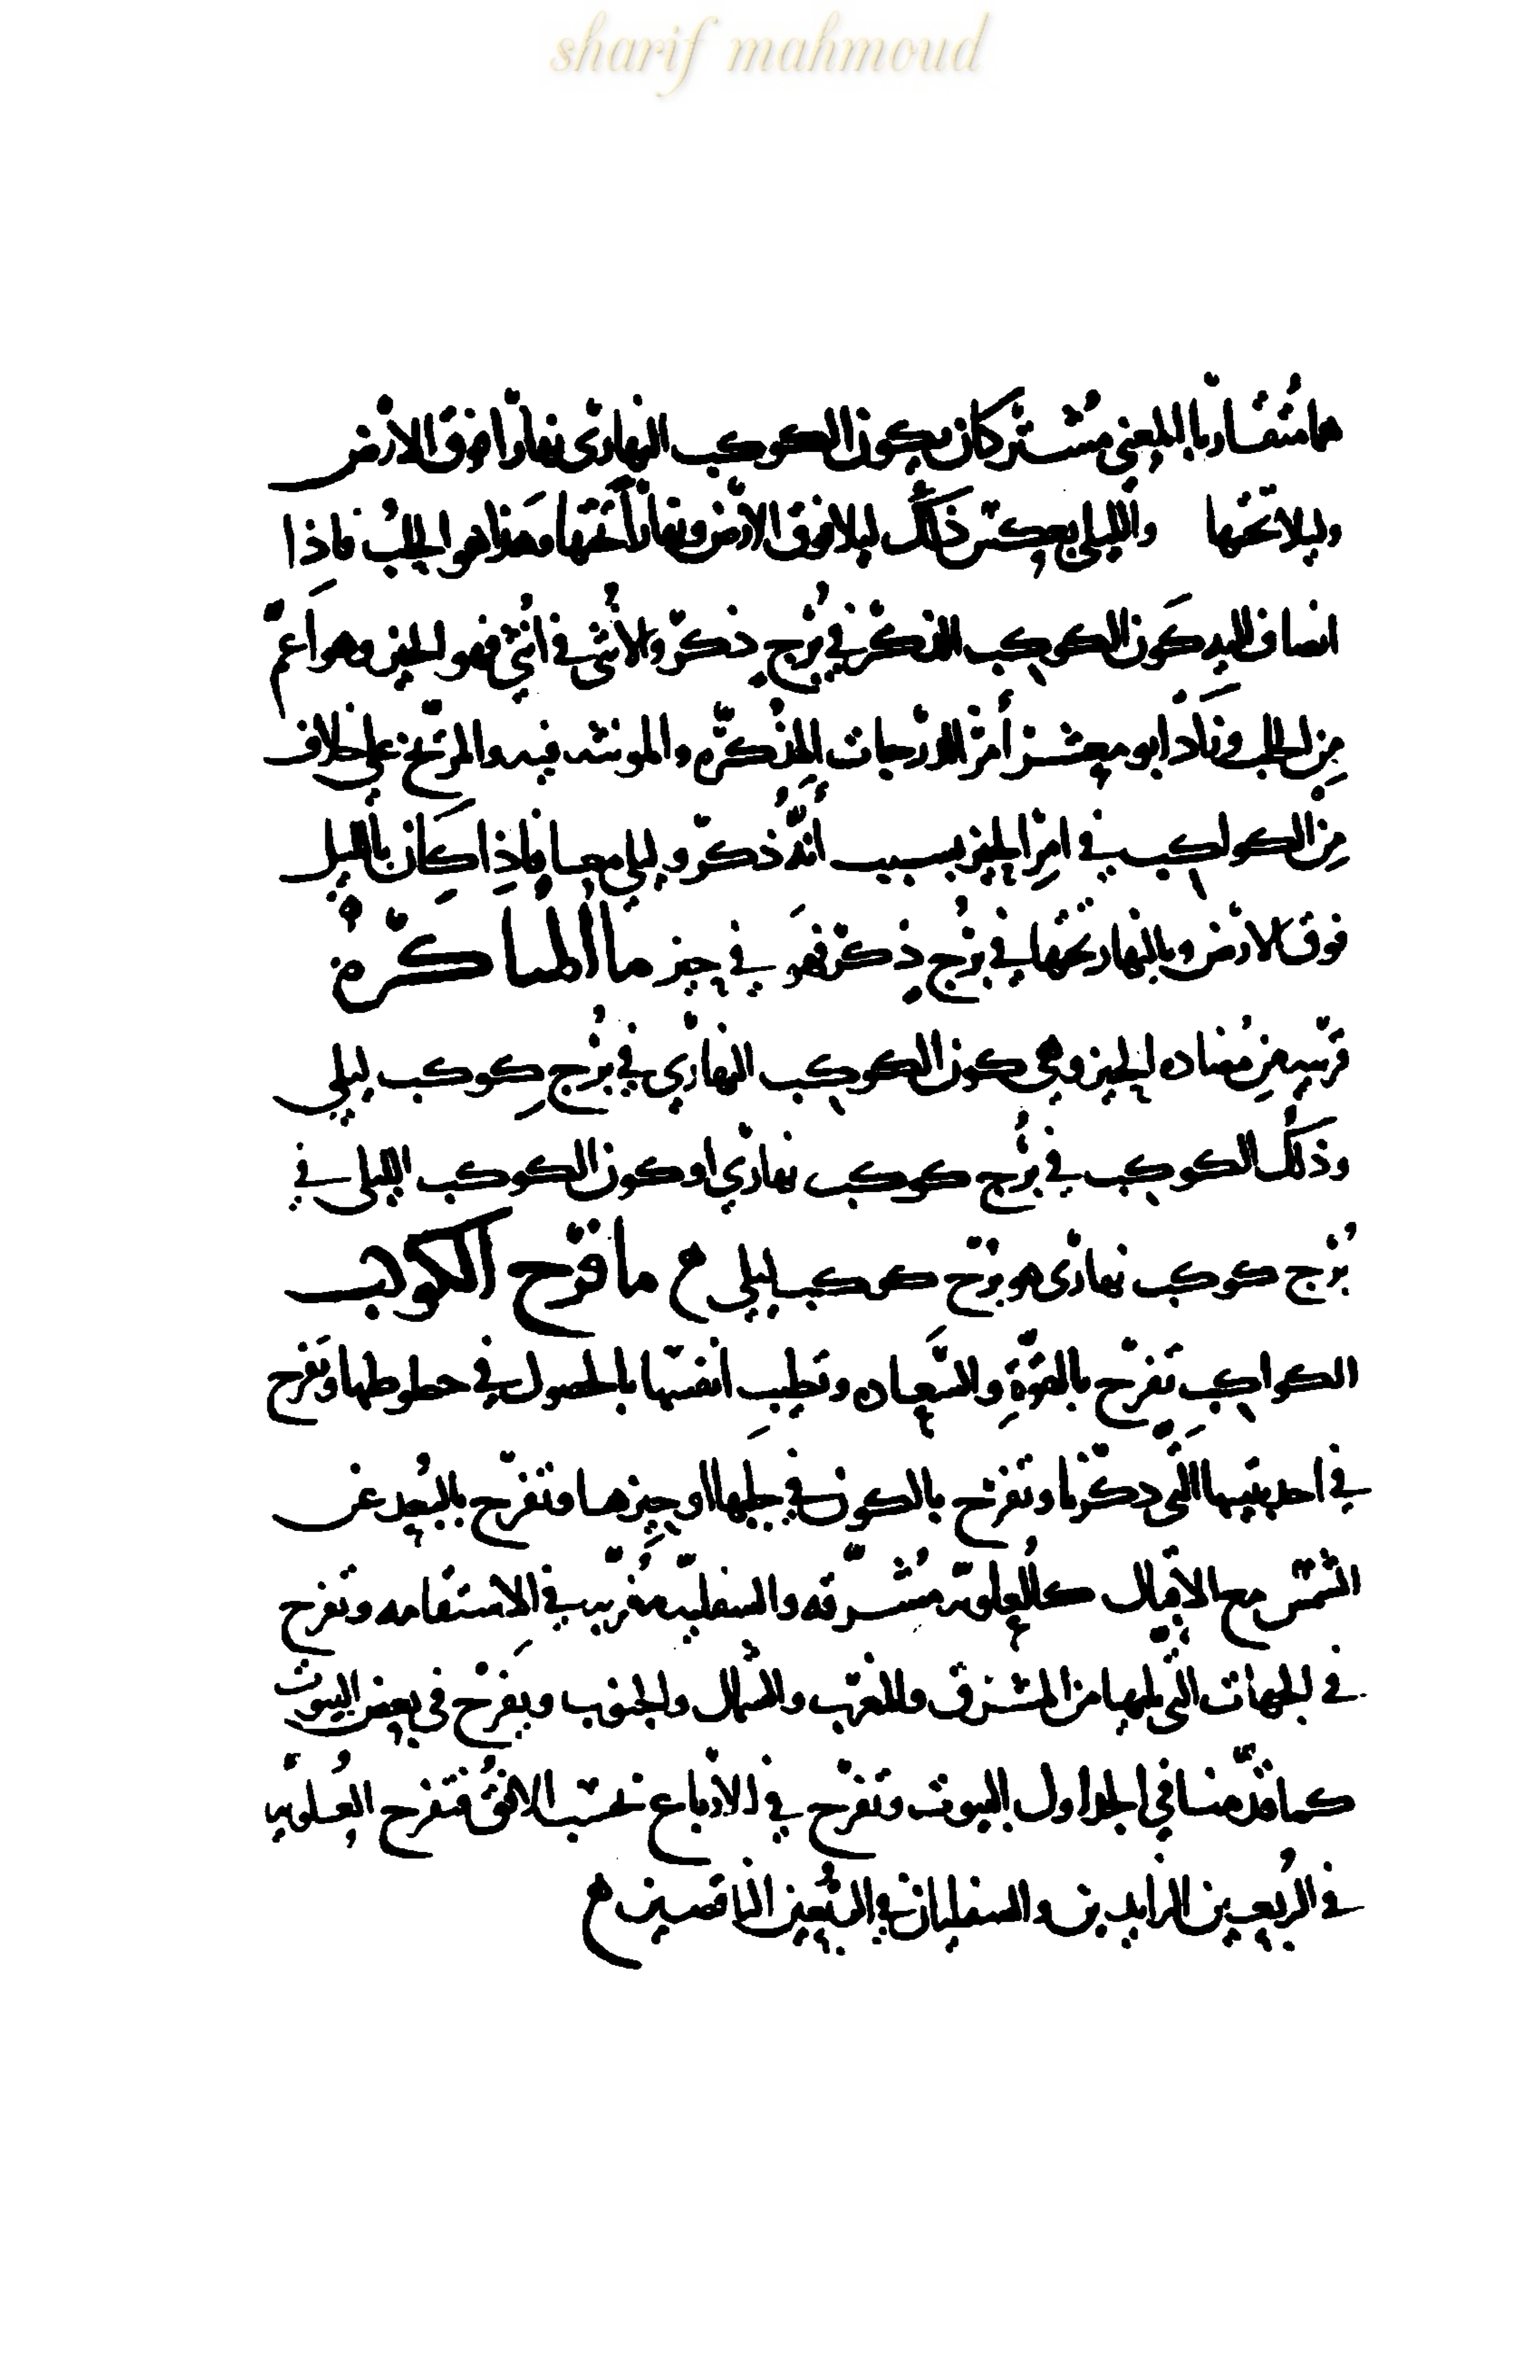 sharif mahmoud
هما متقاربا المعنى مشتركان بكون الكوكب النهاري نهارا فوق الارض
وليلا تحتها والليلي بعكس ذلك ليلا فوق الارض ونهارا تحتها وهذا هو الحلب فاذا
انضاف اليه كون الكوكب الذكر في برج ذكر والانثى في انثى فهو الحيز وهو اعم
من الحلب وزاد ابو معشر أمر الدرجات المذكره والمونثه فيه والمريخ على خلاف
من الكواكب في امر الحيز بسبب أنه ذكر وليلي معا فاذا كان بالليل
فوق الارض وبالنهار تحتها في برج ذكر فهو في حيز ما المناكرة
قريبه من مضاده الحيز وهى كون الكوكب النهاري في برج كوكب ليلي
وذلك الكوكب في برج كوكب نهاري او كون الكوكب الليلى في
برج كوكب نهارى هو برج كوكب ليلي ما فرح الكواكب
الكواكب تفرح بالقوة والسعاده وتطيب انفسها بالحصول في حظوظها وتفرح
في احد بيتيها التى ذكرنا وتفرح بالكون في حلبها او حيزها وتفرح بالبعد عن
الشمس مع الاقبال كالعلويه مشرقه والسفليه مغربه في الاستقامه وتفرح
في الجهات التي تليها من المشرق والمغرب والشمال والجنوب ويفرح في بعض البيوت
كما قدمنا في الجداول البيوت وتفرح في الارباع بحسب الافق فتفرح العلويه
في الربعين الزايدين والسفليان في الربعين الناقصين